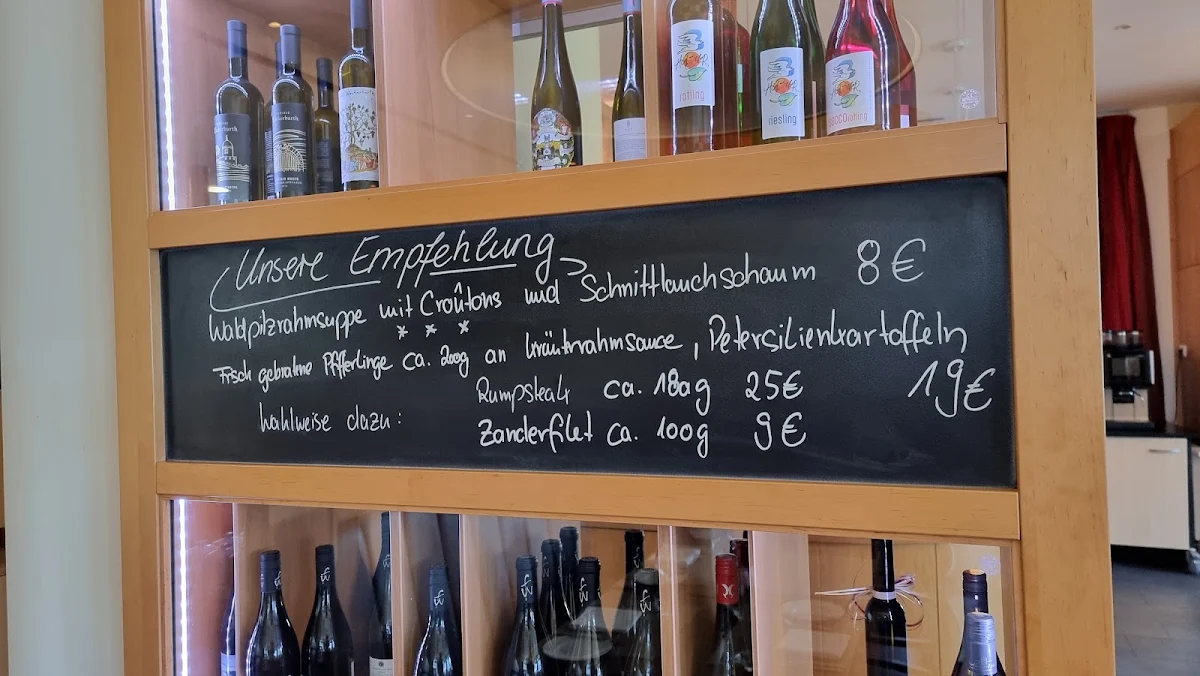 rotling
riesling
Unsere Empfehlung
Waldpilzrahmsuppe mit Croûtons und Schnittlauchschaum 8€
* * *
Frisch gebratene Pfifferlinge ca. 200g an Kräuterrahmsauce, Petersilienkartoffeln
19€
Wahlweise dazu: Rumpsteak ca. 180g 25€
Zanderfilet ca. 100g 9€